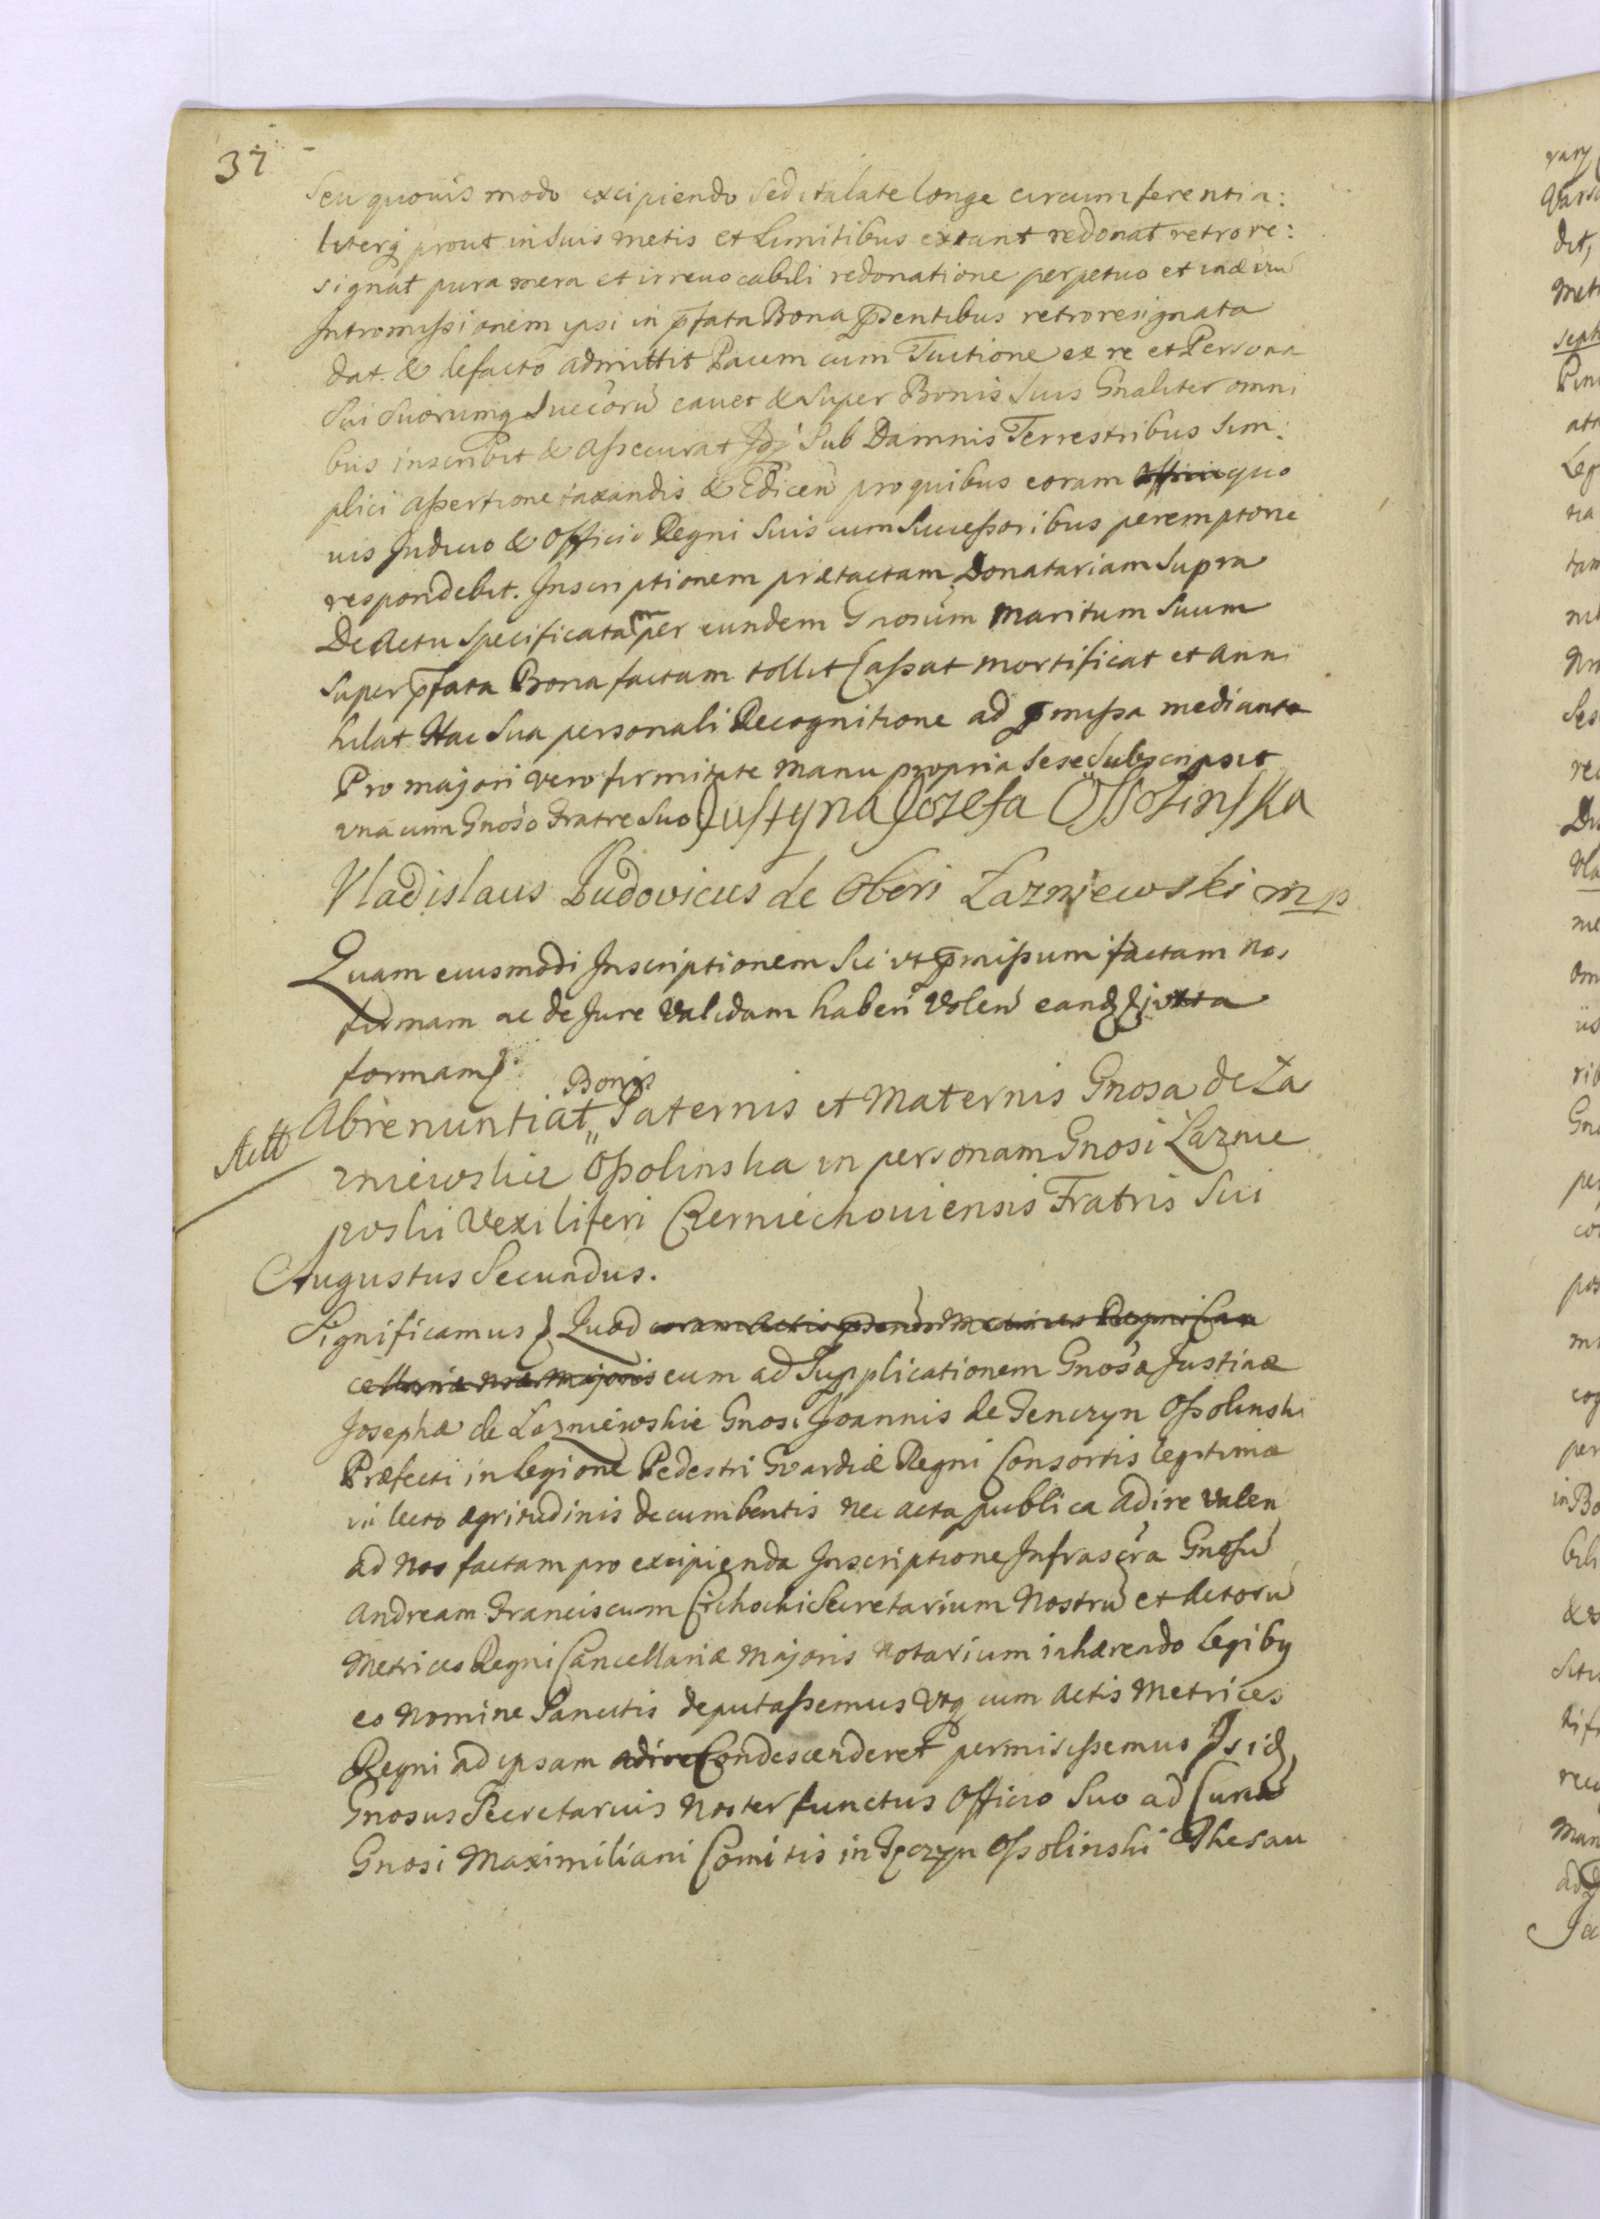 37
Seu quovis modo excipiendo sed ita late longe circumferentia:
literq prout in suis metis et Limitibus extant redonat retro re:
signat pura mera et irrevocabili redonatione perpetuo et in ævū
Intromissionem ipsi in p̄fata Bona p̄sentibus retroresignata
dat. & defacto admittit Pacem cum Tuitione ex re et Persona
Sui Suorumq Succ̄orū cavet & super Bonis suis Gnaliter omni
bus inscribit & assecurat Sub Damnis Terrestribus Sim:
plici assertione taxandis & Edicen̄ pro quibus coram quo
vis Judicio & Officio Regni Suis cum Successoribus peremptorie
respondebit. Inscriptionem prætactam Donatariam supra
De Actu Specificatam per eundem Gnosum Maritum Suum
super p̄fata Bona factam tollit Cassat mortificat et anni
hilat Hac Sua personali Recognitione ad p̄missa mediante
Pro majori vero firmitate Manu propria sese subscripsit
vna cum Gnōso Fratre Suo Justyna Jozefa Ossolinska
Vladislaus Ludovicus de Obori Lazniewski mp
Quam eiusmodi Inscriptionem Sic ut p̄missum factam Nos
firmam ac de Jure Validam haberi Volen̄ eand juxta
formam
Bonis
Abrenuntiat Paternis et Maternis Gnosa de La
Actt
zniewskie Ossolinska in personam Gnosi Laznie
wski Vexiliferi Czerniechoviensis Fratris Sui
Augustus Secundus.
Significamus Quod coram Actis p̄sentibus Metrices Regni Can
cellariæ nræ Majoris cum ad Supplicationem Gnosæ Justinæ
Josephæ de Lazniewskie Gnosi Joannis de Tenczyn Ossolinski
Præfecti in legione Pedestri Gvardiæ Regni Consortis legitimæ
in lecto ægritudinis decumbentis nec acta publica adire valen̄
ad Nos factam pro excipienda Inscriptione Infrascr̄a Gnosū
Andream Franciscum Cichocki Secretarium Nostrū et Actorū
Metrices Regni Cancellariæ Majoris Notarium inhærendo legibq
eo Nomine Sancitis deputassemus Vtq cum Actis Metrices
Regni ad ipsam adire Condescenderet permisissemus Is id
Gnosus Secretarius Noster functus Officio Suo ad
Gnosi Maximiliani Comitis in Tęczyn Ossolinski Thesau